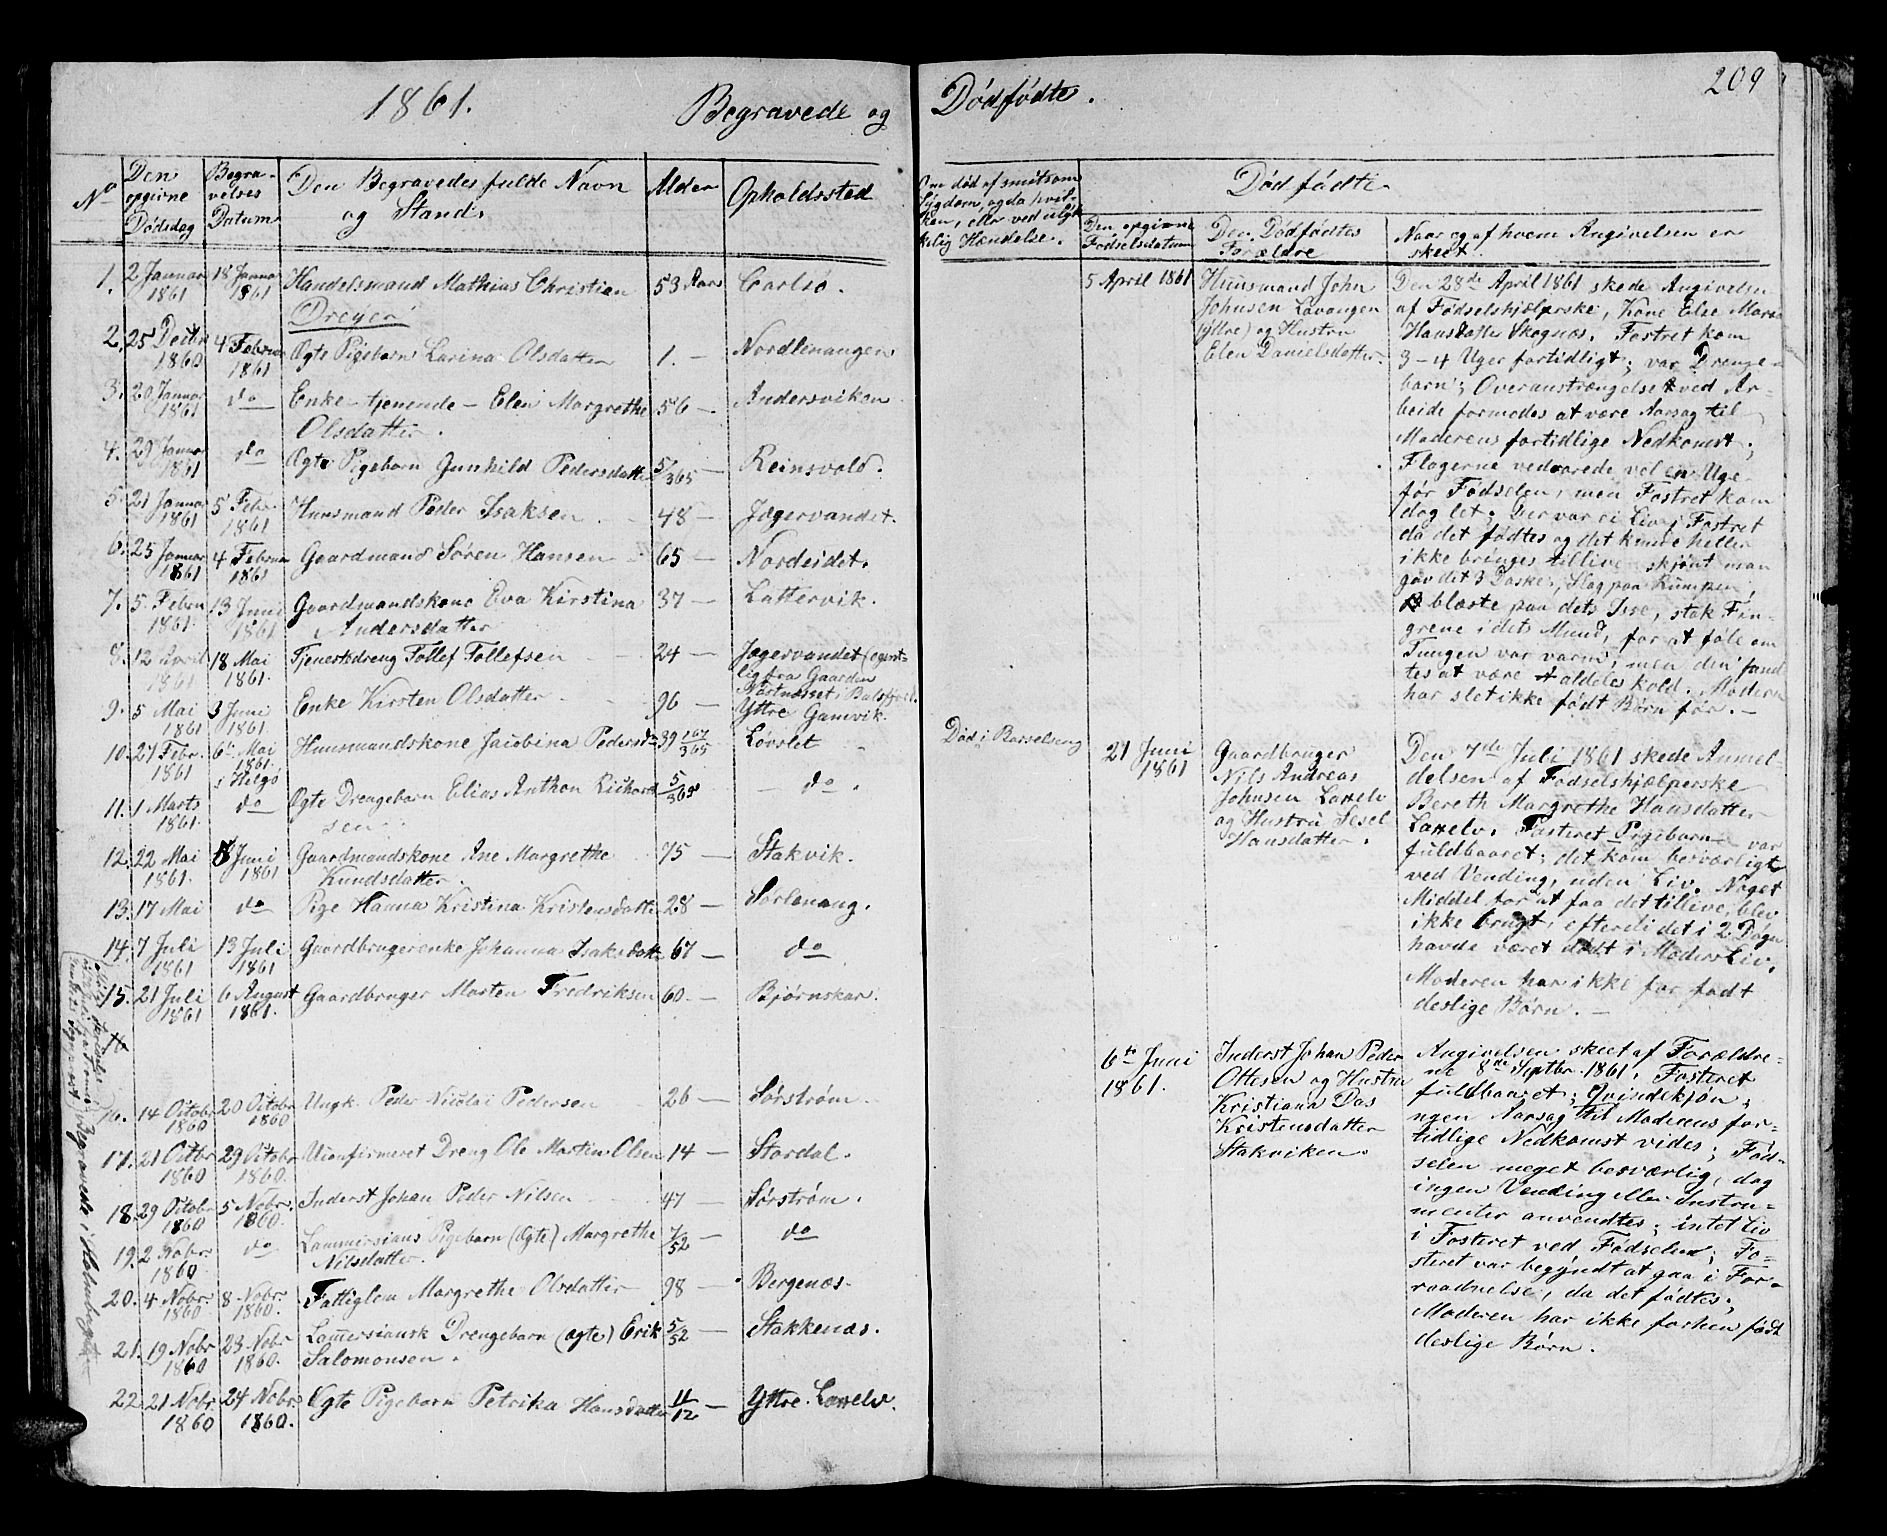 1861. Begravede og Dødfødte. 209
No
Den opgivne Dødsdag
Begravelses Datum
Den Begravedes fulde Navn og Stand.
Alder
Opholdssted
Om død af smitsom Sygdom, og da hvilken, eller ved ulykkelig Hændelse.
Dødfødte
Den opgivne Fødselsdatum
Den Dødfødtes Forældre
Naar og af hvem Angivelsen er skeet.
1. 2 Januar 1861 18 Januar 1861 Handelsmand Mathias Christian Dreyer 53 Aar Carlsø.
2. 25 Decbr 1860 4 Februar 1861 Ægte Pigebarn Larina Olsdatter 1. — Nordlenangen
3. 20 Januar 1861 do Enke - tjenende - Elen Margrethe Olsdatter. 56 — Andersviken
4. 29 Januar 1861 do Ægte Pigebarn Gunhild Pedersdatter 5/365 — Reinsvold.
5. 21 Januar 1861 5 Febr. 1861 Huusmand Peder Isaksen 48 — Jægervandet.
6. 25 Januar 1861 4 Februar 1861 Gaardmand Søren Hansen 65 — Nordeidet.
7. 5. Febru 1861. 13 Juni 1861 Gaardmandskone Eva Kirstina Andersdatter 37 — Lattervik.
8. 12 April 1861 18 Mai 1861. Tjenestedreng Tollef Tollefsen 24 — Jægervandet (egentlig fra Gaarden i Balsfjord.
9. 5 Mai 1861 3 Juni 1861. Enke Kirsten Olsdatter 96 — Yttre Gamvik.
10. 27 Febr. 1861 6te Mai 1861. i Helgø Huusmandskone Jacobina Pedersdr 39 107/365 Løvslet
11. 1 Marts 1861. do Ægte Drengebarn Elias Anthon Richardsen 5/365 — do.
12. 22 Mai 1861. 8 Juni 1861 Gaardmandskone Ane Margrethe Knudsdatter. 75 — Stakvik.
13. 17 Mai do Pige Hanna Kristina Kristensdatter 28 — Sørlenang.
14. 7 Juli 1861 13 Juli 1861 Gaardbrugerenke Johanna Isaksdatter 67 — do
15. 21 Juli 1861 6 August 1861. Gaardbruger Morten Fredriksen 60. — Bjørnskar.
16. 14 Octobr 1860 20 Octobr 1860 Ungk. Peder Nicolai Pedersen 26 — Sørstrøm.
17. 21 Octbr 1860 29 Octobr 1860. Uconfirmeret Dreng Ole Martin Olsen 14 — Stordal.
18. 29 Octobr 1860 5 Nobr. 1860. Inderst Johan Peder Nilsen 47 — Sørstrøm.
19. 2 Nobr. 1860 do Pigebarn (Ægte) Margrethe Nilsdatter. 7/52 — do
20. 4 Nobr. 1860 8 Nobr. 1860. Fattiglem Margrethe Olsdatter 98 — Bergenæs.
21. 19 Nobr 1860 23 Nobr 1860. Drengebarn (ægte) Erik Salomonsen. 5/52 — Stakkenæs.
22. 21 Nobr. 1860 24 Nobr 1860. Ægte Pigebarn Petrika Hansdatter 11/12 — Yttre Laxelv.
Begravede i
Død i Barselseng
5 April 1861
Huusmand John
Johnsen Lavangen
(Yttre) og Hustru
Elen Danielsdatter.
Den 28de April 1861 skede Angivelsen
af Fødselshjelperske, Kone Else Maria
Hansdatter Skognæs. Fostret kom
3-4 Uger fortidligt; var Drenge-
barn; Overanstrængelse ved Ar-
beide formodes at være Aarsag til
Moderens fortidlige Nedkomst;
Flagerne vedvarede vel en Uge
før Fødselen, men Fostret kom
dog let. Der var ei Liv i Fostret
da det fødtes og det kunde heller
ikke bringes tillive skjønt man
gav det 3 Daske, Slag paa Rumpen,
blæste paa dets Isse, stak Fin-
grene i dets Mund, for at føle om
Tungen var varm, men den fand-
tes at være aldeles kold. Moderen
har slet ikke født Børn før. —
21 Juni 1861
Gaardbruger
Nils Andreas
Johnsen Laxelv
og Hustru Sesel
Hansdatter.
Den 7de Juli 1861 skede Anmel-
delsen af Fødselshjælperske
Bereth Margrethe Hansdatter
Laxelv. Fosteret Pigebarn var
fuldbaaret; det kom besværligt
ved Vending, uden Liv. Noget
Middel for at faa det tillive, blev
ikke brugt, efterdi det i 2 Døgn
havde været dødt i Moders Liv.
Moderen har ikke før født
deslige Børn. —
6te Juni 1861.
Inderst Johan Peder
Ottesen og Hustru
Kristiana Das
Kristensdatter
Stakviken.
Angivelsen skeet af Forældre-
ne 8de Septbr. 1861. Fosteret
fuldbaaret; Qvindekjøn;
ngen Aarsag til Moderens for-
tidlige Nedkomst vides; Fød-
selen meget besværlig, dog
ingen Vending eller Instru-
menter anvendtes; intet Liv
i Fosteret ved Fødselen; Fo-
steret var begyndt at gaa i For-
raadnelse, da det fødtes;
Moderen har ikke forhen født
deslige Børn.